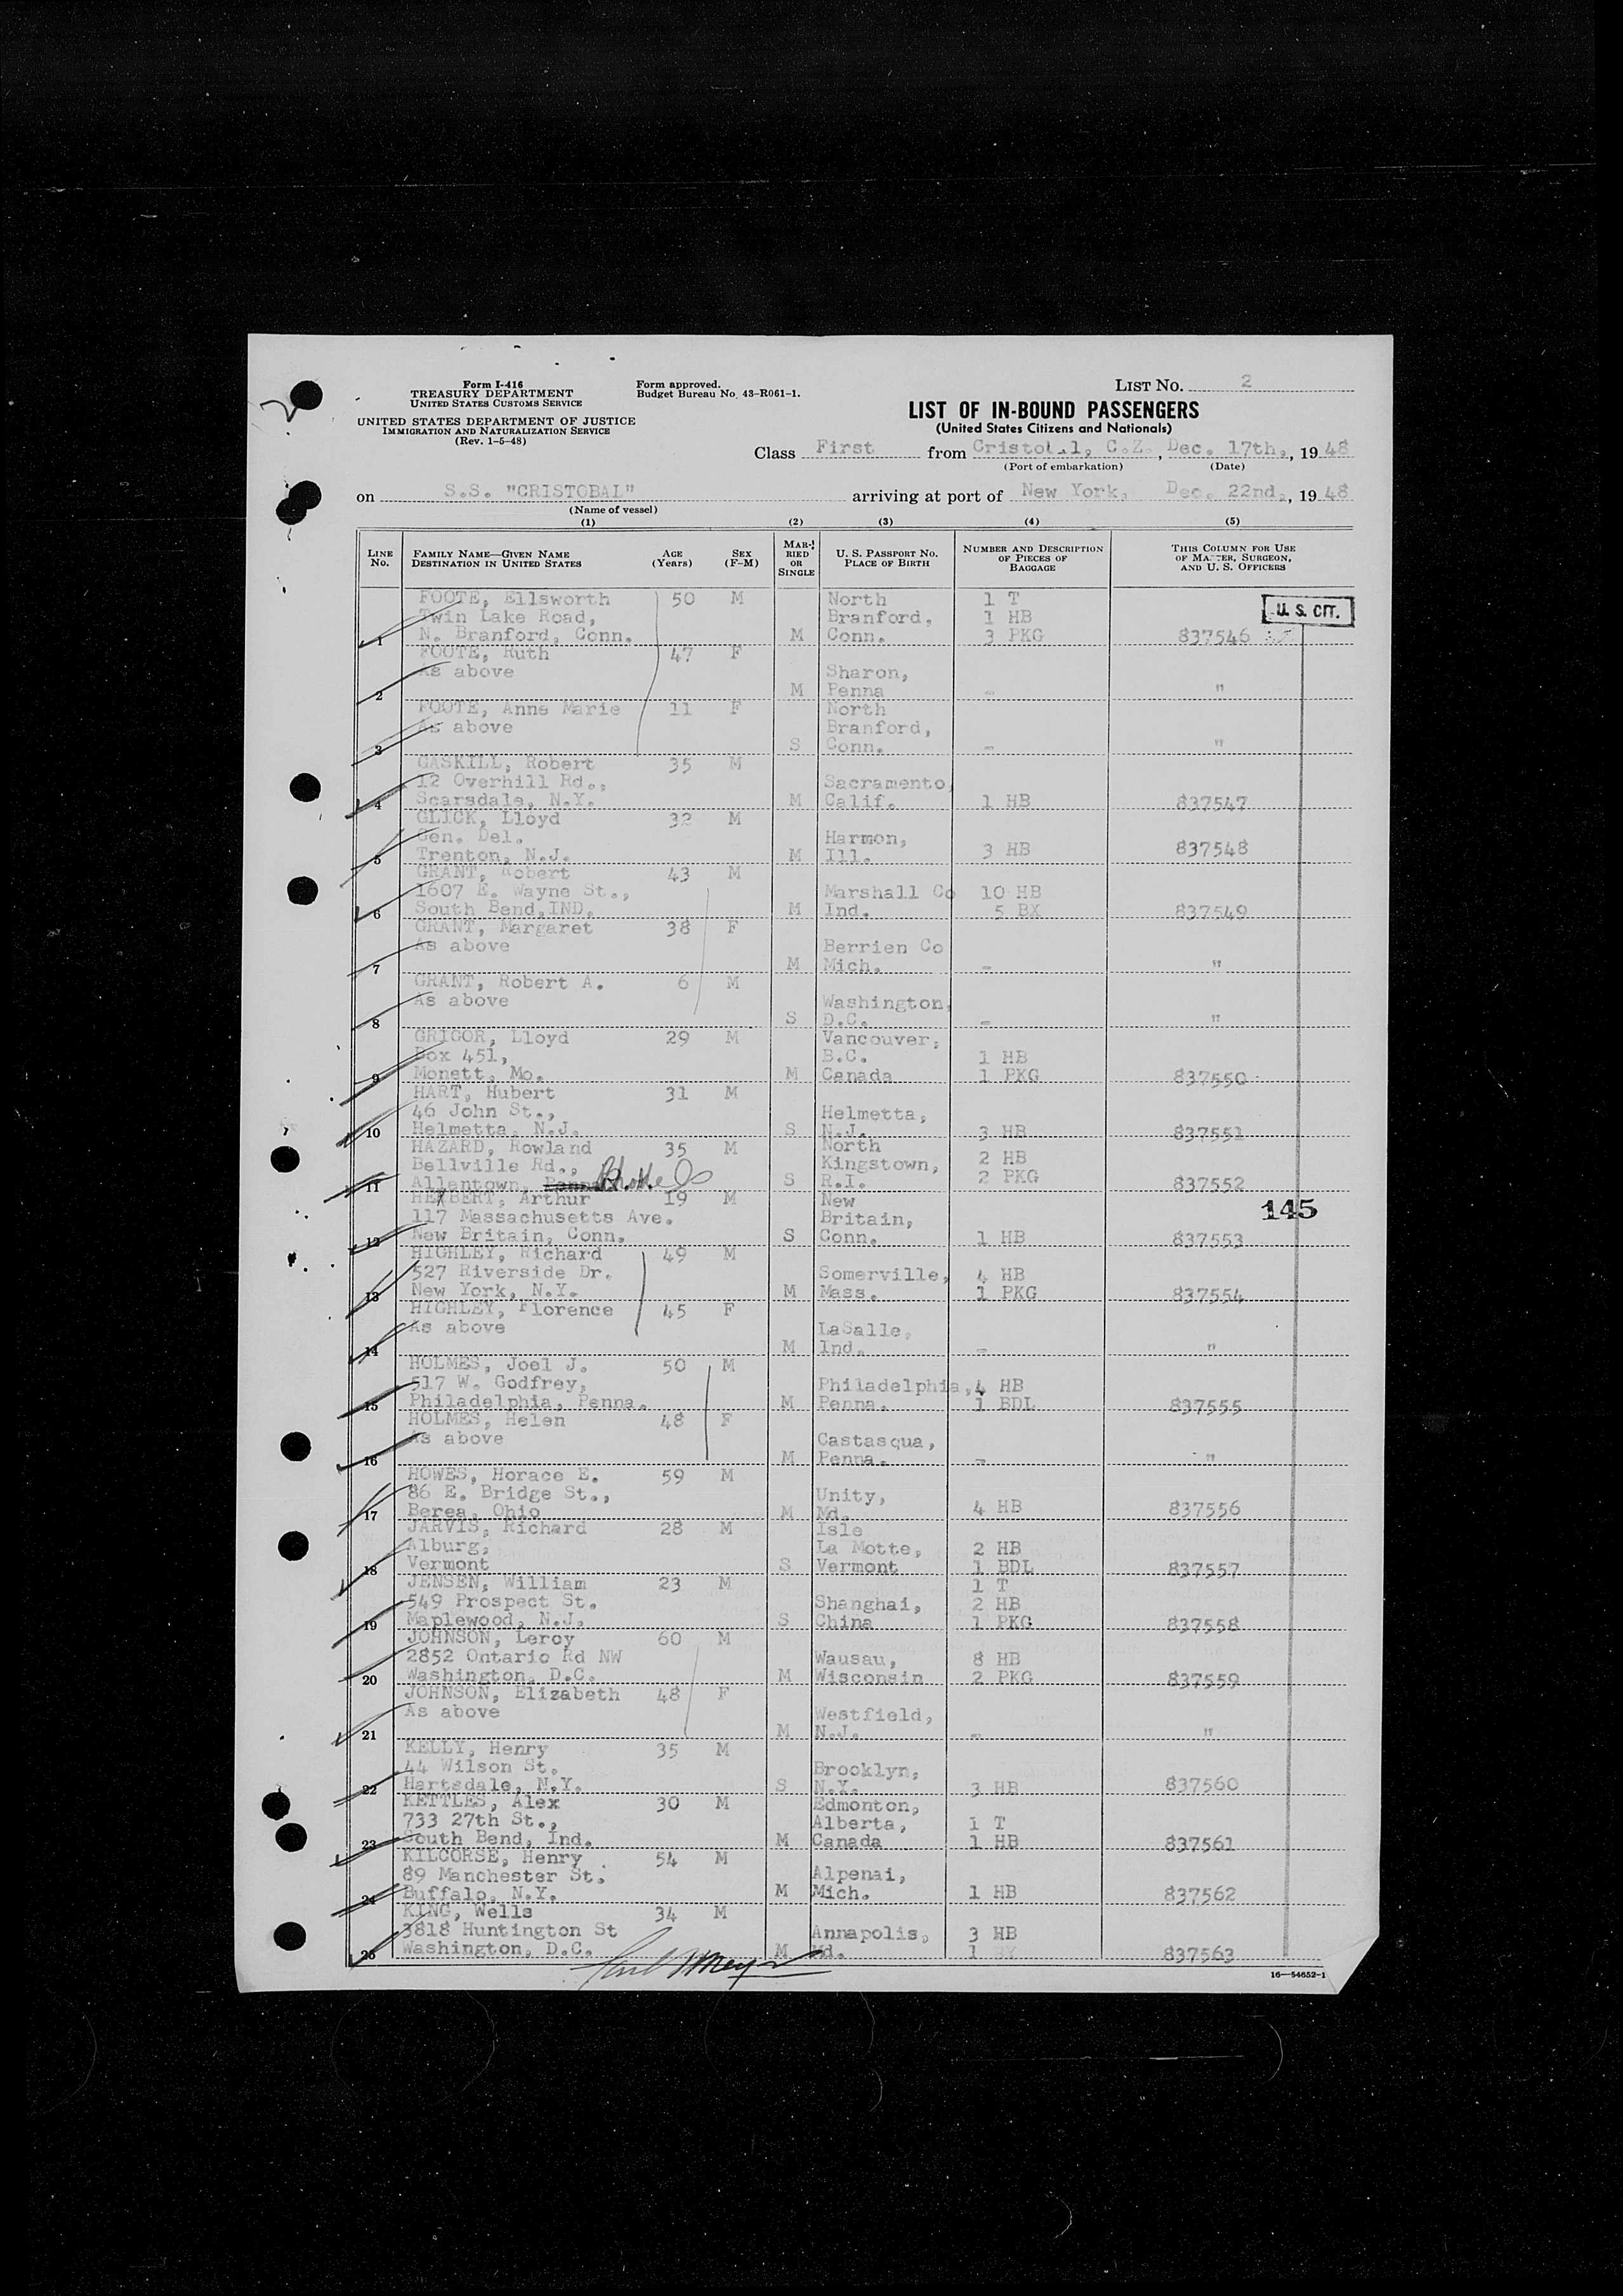 Form I-416
TREASURY DEPARTMENT
UNITED STATES CUSTOMS SERVICE
UNITED STATES DEPARTMENT OF JUSTICE
IMMIGRATION AND NATURALIZATION SERVICE
(Rev. 1-5-48)
Form approved.
Budget Bureau No. 43-R061-1.
LIST NO. 2
LIST OF IN-BOUND PASSENGERS
(United States Citizens and Nationals)
Class First from Cristol.l, C.Z., Dec. 17th., 1948
(Port of embarkation) (Date)
on S.S. "CRISTOBAL" arriving at port of New York, Dec. 22nd., 1948
(Name of vessel)
(1) (2) (3) (4) (5)
LINE No. FAMILY NAME—GIVEN NAME DESTINATION IN UNITED STATES AGE (Years) SEX (F-M) MARRIED OR SINGLE U. S. PASSPORT NO. PLACE OF BIRTH NUMBER AND DESCRIPTION OF PIECES OF BAGGAGE THIS COLUMN FOR USE OF MASTER, SURGEON, AND U. S. OFFICERS
U. S. CIT.
FOOTE, Ellsworth 50 M North 1 T
Twin Lake Road, Branford, 1 HB
1 N. Branford, Conn. M Conn. 3 PKG 837546
FOOTE, Ruth 47 F
As above Sharon,
2 M Penna - "
FOOTE, Anne Marie 11 F North
As above Branford,
3 S Conn. - "
GASKILL, Robert 35 M
12 Overhill Rd., Sacramento,
4 Scarsdale, N.Y. M Calif. 1 HB 837547
GLICK, Lloyd 32 M
Gen. Del. Harmon,
5 Trenton, N.J. M Ill. 3 HB 837548
GRANT, Robert 43 M
1607 E. Wayne St., Marshall Co 10 HB
6 South Bend,IND. M Ind. 5 BX 837549
GRANT, Margaret 38 F
As above Berrien Co
7 M Mich. - "
GRANT, Robert A. 6 M
As above Washington,
8 S D.C. - "
GRIGOR, Lloyd 29 M Vancouver,
Box 451, B.C. 1 HB
9 Monett, Mo. M Canada 1 PKG 837550
HART, Hubert 31 M
46 John St., Helmetta,
10 Helmetta, N.J. S N.J. 3 HB 837551
HAZARD, Rowland 35 M North
Bellville Rd., Kingstown, 2 HB
11 Allentown, S R.I. 2 PKG 837552
HERBERT, Arthur 19 M New
145
117 Massachusetts Ave. Britain,
12 New Britain, Conn. S Conn. 1 HB 837553
HIGHLEY, Richard 49 M
527 Riverside Dr. Somerville, 4 HB
13 New York, N.Y. M Mass. 1 PKG 837554
HIGHLEY, Florence 45 F
As above LaSalle,
14 M Ind. - "
HOLMES, Joel J. 50 M
517 W. Godfrey, Philadelphia, 4 HB
15 Philadelphia, Penna. M Penna. 1 BDL 837555
HOLMES, Helen 48 F
As above Castasqua,
16 M Penna. - "
HOWES, Horace E. 59 M
86 E. Bridge St., Unity,
17 Berea, Ohio M Md. 4 HB 837556
JARVIS, Richard 28 M Isle
Alburg, La Motte, 2 HB
18 Vermont S Vermont 1 BDL 837557
JENSEN, William 23 M 1 T
549 Prospect St. Shanghai, 2 HB
19 Maplewood, N.J. S China 1 PKG 837558
JOHNSON, Leroy 60 M
2852 Ontario Rd NW Wausau, 8 HB
20 Washington, D.C. M Wisconsin 2 PKG 837559
JOHNSON, Elizabeth 48 F
As above Westfield,
21 M N.J. - "
KELLY, Henry 35 M
44 Wilson St. Brooklyn,
22 Hartsdale, N.Y. S N.Y. 3 HB 837560
KETTLES, Alex 30 M Edmonton,
733 27th St., Alberta, 1 T
23 South Bend, Ind. M Canada 1 HB 837561
KILCORSE, Henry 54 M
89 Manchester St. Alpenai,
24 Buffalo, N.Y. M Mich. 1 HB 837562
KING, Wells 34 M
3818 Huntington St Annapolis, 3 HB
25 Washington, D.C. M Md. 1 BX 837563
16—54652-1